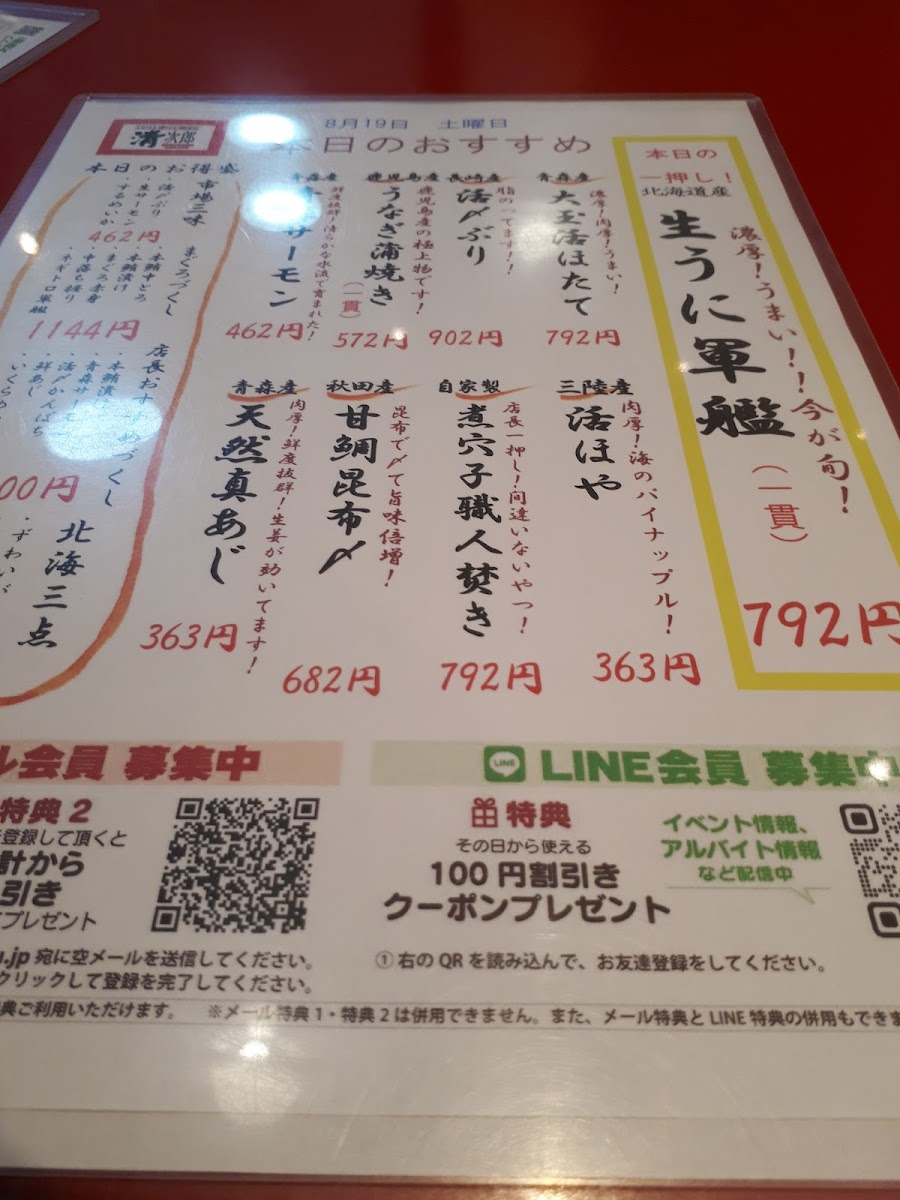 清次郎
8月19日 土曜日
本日のおすすめ
本日の
一押し！
北海道産
濃厚！うまい！！今が旬！
生うに軍艦
（一貫）
792円
青森産
濃厚！肉厚！うまい！
大玉活ほたて
792円
長崎産
脂のってます！！
活〆ぶり
902円
鹿児島産
鹿児島産の極上物です！
うなぎ蒲焼き
（一貫）
572円
青森産
鮮度抜群！清らかな水流で育まれた！
サーモン
462円
三陸産
肉厚！海のパイナップル！
活ほや
363円
自家製
店長一押し！間違いないやつ！
煮穴子職人焚き
792円
秋田産
昆布で〆て旨味倍増！
甘鯛昆布〆
682円
青森産
肉厚！鮮度抜群！生姜が効いてます！
天然真あじ
363円
本日のお得盛
市場三昧
・活〆ぶり
・生サーモン
・するめいか
462円
まぐろづくし
・本鮪中とろ
・本鮪漬け
・まぐろ赤身
・中落ち握り
・ネギトロ軍艦
1144円
店長おすすめづくし
・本鮪漬け
・青森サーモン
・活〆かんぱち
・鮮あじ
・いくらめ
00円
北海三点
・ずわいが
ル会員 募集中
特典2
登録して頂くと
計から
引き
プレゼント
u.jp 宛に空メールを送信してください。
クリックして登録を完了してください。
LINE
LINE会員 募集中
特典
その日から使える
100円割引き
クーポンプレゼント
イベント情報、
アルバイト情報
など配信中
① 右のQRを読み込んで、お友達登録をしてください。
典ご利用いただけます。 ※メール特典1・特典2は併用できません。また、メール特典とLINE特典の併用もできま